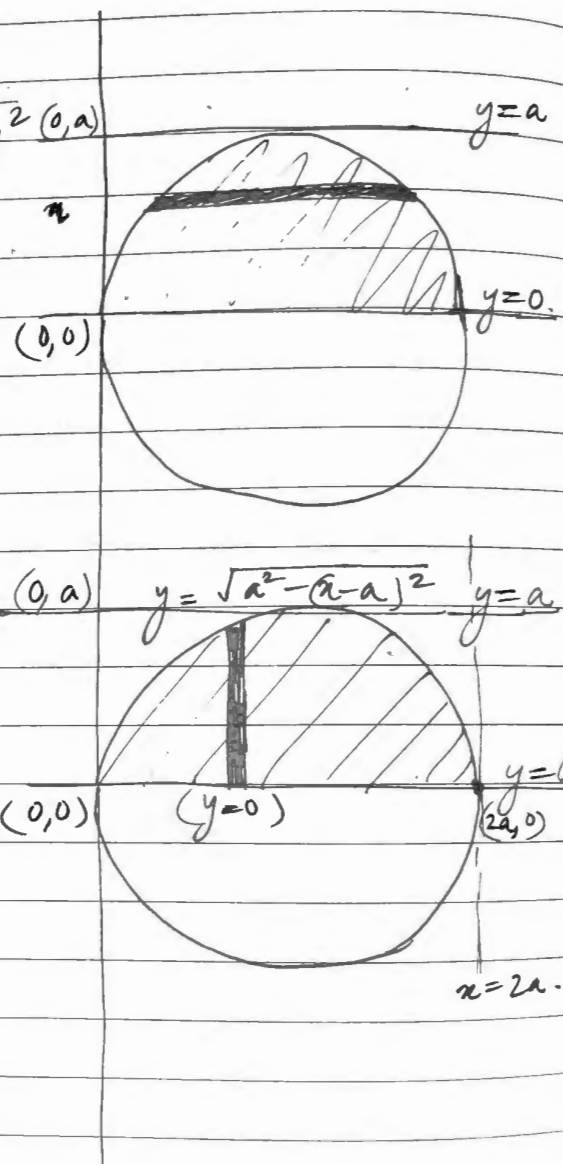 2 (0,a) y=a
x
y=0.
(0,0)
(0,a) y = √a²-(x-a)² y=a
(0,0) (y=0) (2a,0)
x=2a.